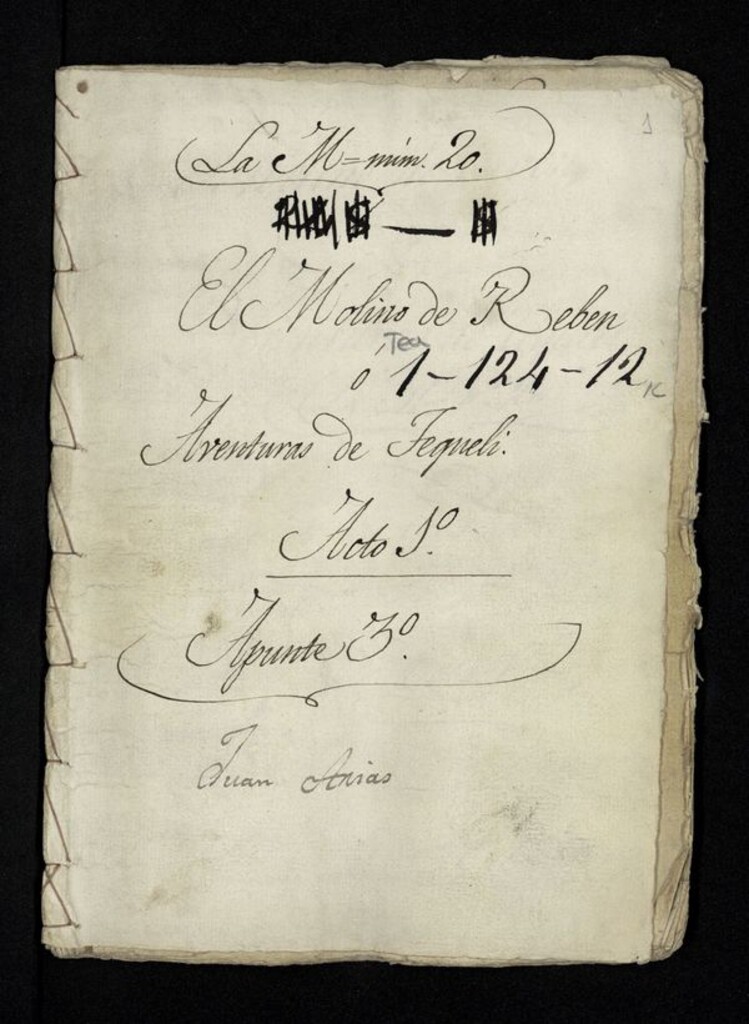 1
La M= núm. 20.
El Molino de Reben
Tea
ó 1-124-12
Aventuras de Tequeli.
Acto 1º
Apunte 3º.
Juan Arias